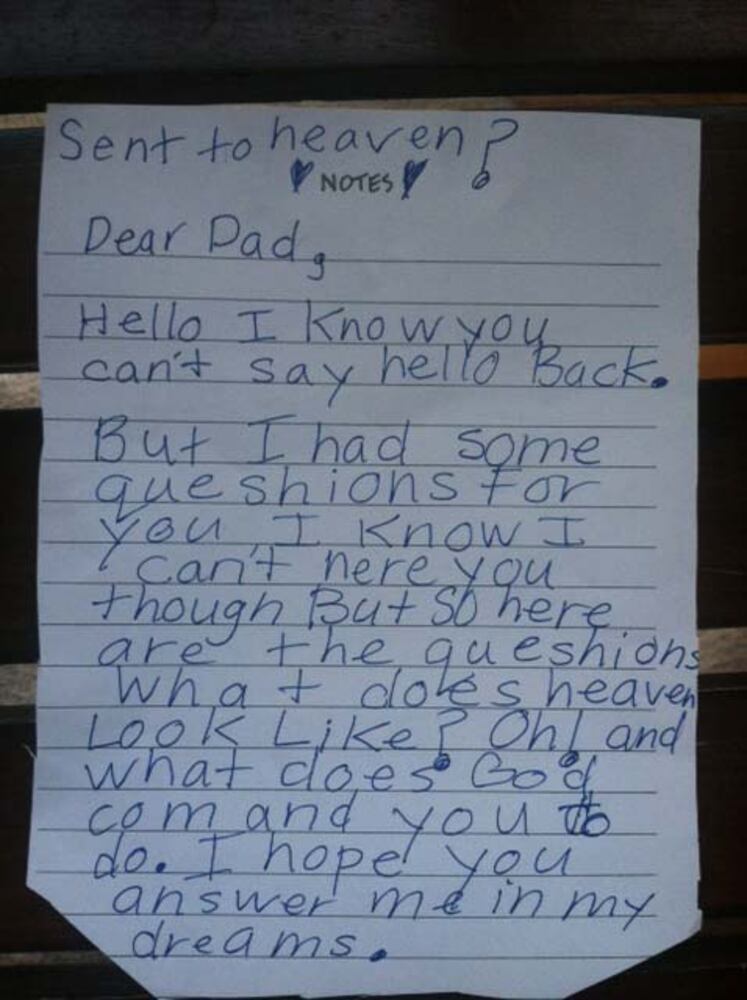 Sent to heaven?
NOTES
Dear Dad,
Hello I know you
can't say hello Back.
But I had some
queshions for
you I know I
can't here you
though But so here
are the queshions
What does heaven
Look Like? Oh! and
what does God
comand you to
do. I hope you
answer me in my
dreams.